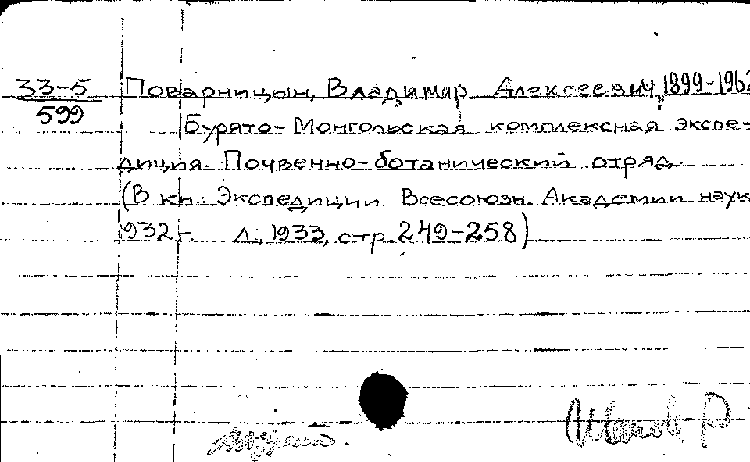 33-5 Поварницын, Владимир Алексеевич, 1899-196
599
Бурято-Монгольская комплексная экспе-
диция. Почвенно-ботанический отряд.
(В кн.: Экспедиции Всесоюзн. Академии наук
1932 г. Л., 1933, стр. 249-258)